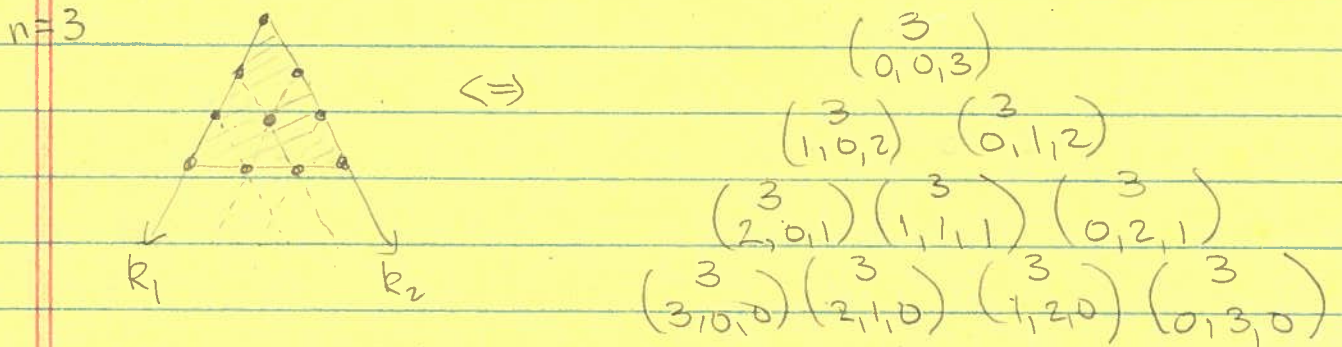 n=3
<=>
(3
0,0,3)
(3
1,0,2) (3
0,1,2)
(3
2,0,1) (3
1,1,1) (3
0,2,1)
(3
3,0,0) (3
2,1,0) (3
1,2,0) (3
0,3,0)
k₁ k₂